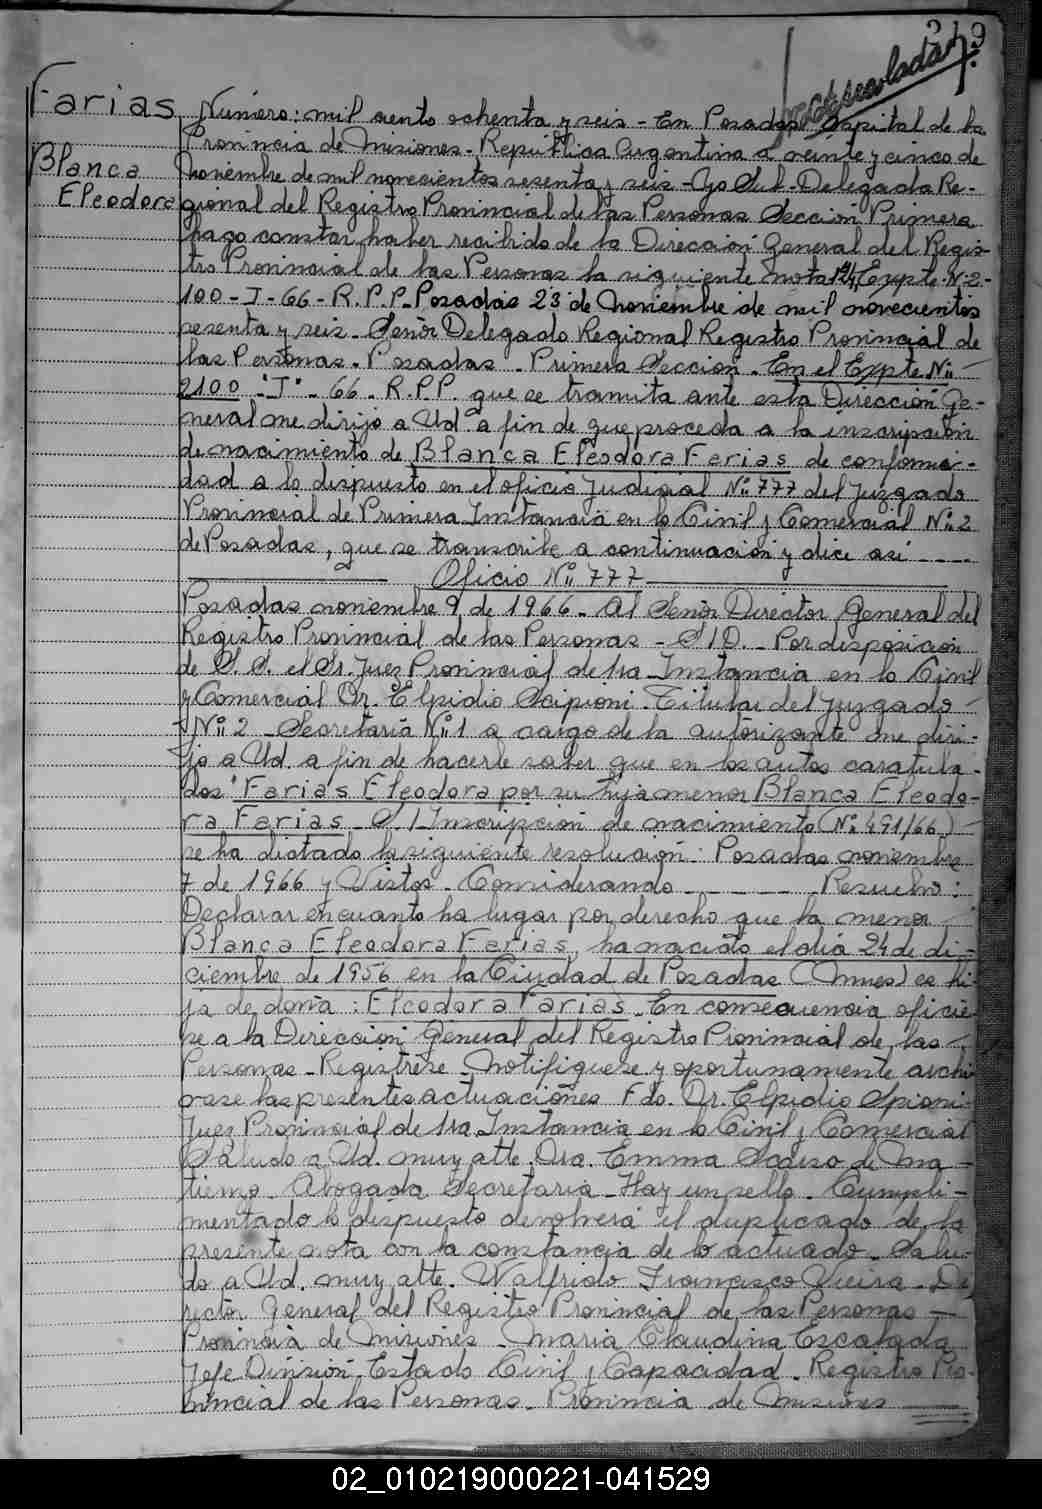 219
Farias
Blanca
Eleodora
Número: mil ciento ochenta y seis - En Posadas Capital de la
Provincia de Misiones - República Argentina a veinte y cinco de
Noviembre de mil novecientos sesenta y seis - Yo Sub-Delegada Re-
gional del Registro Provincial de las Personas Sección Primera
hago constar haber recibido de la Dirección General del Regis-
tro Provincial de las Personas la siguiente nota Expte. N-2-
100 - J - 66 - R.P.P. Posadas 23 de noviembre de mil novecientos
sesenta y seis. Señor Delegado Regional Registro Provincial de
las Personas. Posadas - Primera Sección. En el Expte Nº
2100 "J" - 66 - R.P.P. que se tramita ante esta Dirección Ge-
neral me dirijo a Ud. a fin de que proceda a la inscripción
de nacimiento de Blanca Eleodora Farias de conformi-
dad a lo dispuesto en el oficio Judicial Nº 777 del Juzgado
Provincial de Primera Instancia en lo Civil y Comercial Nº 2
de Posadas, que se transcribe a continuación y dice así ----
Oficio Nº 777
Posadas noviembre 9 de 1966 - Al Señor Director General del
Registro Provincial de las Personas - S/D. - Por disposición
de S.S. el Sr. Juez Provincial de 1ra Instancia en lo Civil
y Comercial Dr. Elpidio Scipioni. Titular del Juzgado
Nº 2 Secretaría Nº 1 a cargo de la autorizante me diri-
jo a Ud. a fin de hacerle saber que en los autos caratula-
dos "Farias Eleodora por su hija menor Blanca Eleodo-
ra Farias S/Inscripción de nacimiento (Nº 491/66)
se ha dictado la siguiente resolución: Posadas noviembre
7 de 1966 y Vistos - Considerando ------ Resuelvo:
Declarar en cuanto ha lugar por derecho que la menor
Blanca Eleodora Farias, ha nacido el día 24 de di-
ciembre de 1956 en la Ciudad de Posadas (Mnes) es hi-
ja de doña: Eleodora Farias. En consecuencia oficie-
se a la Dirección General del Registro Provincial de las
Personas - Regístrese - Notifíquese y oportunamente archi
vese las presentes actuaciones Fdo. Dr. Elpidio Spioni-
Juez Provincial de 1ra Instancia en lo Civil y Comercial
Saludo a Ud. muy atte. Dra. Emma de Ma-
tienzo. Abogada Secretaria - Hay un sello. Cumpli-
mentado lo dispuesto devolverá el duplicado de la
presente nota con la constancia de lo actuado. Salu-
do a Ud. muy atte. Walfrido Francisco Vieira - Di
rector General del Registro Provincial de las Personas -
Provincia de Misiones - Maria Claudina Escalada
Jefe División Estado Civil y Capacidad. Registro Pro-
vincial de las Personas. Provincia de Misiones
02_010219000221-041529